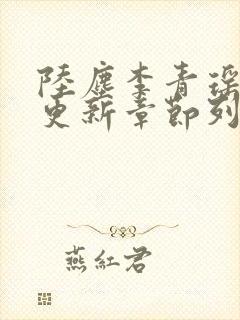 陸塵李青瑶
更新章節列
燕紅君